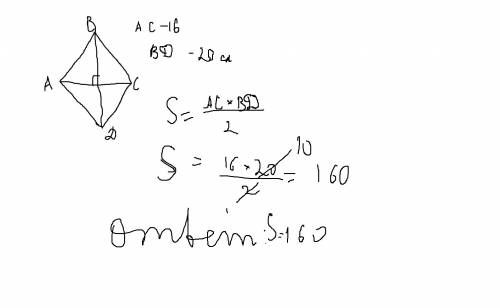 B
A C - 16
BD - 20 см
A C
D
S = AC × BD / 2
S = 16 × 20 / 2 = 160
10
ответ: S = 160